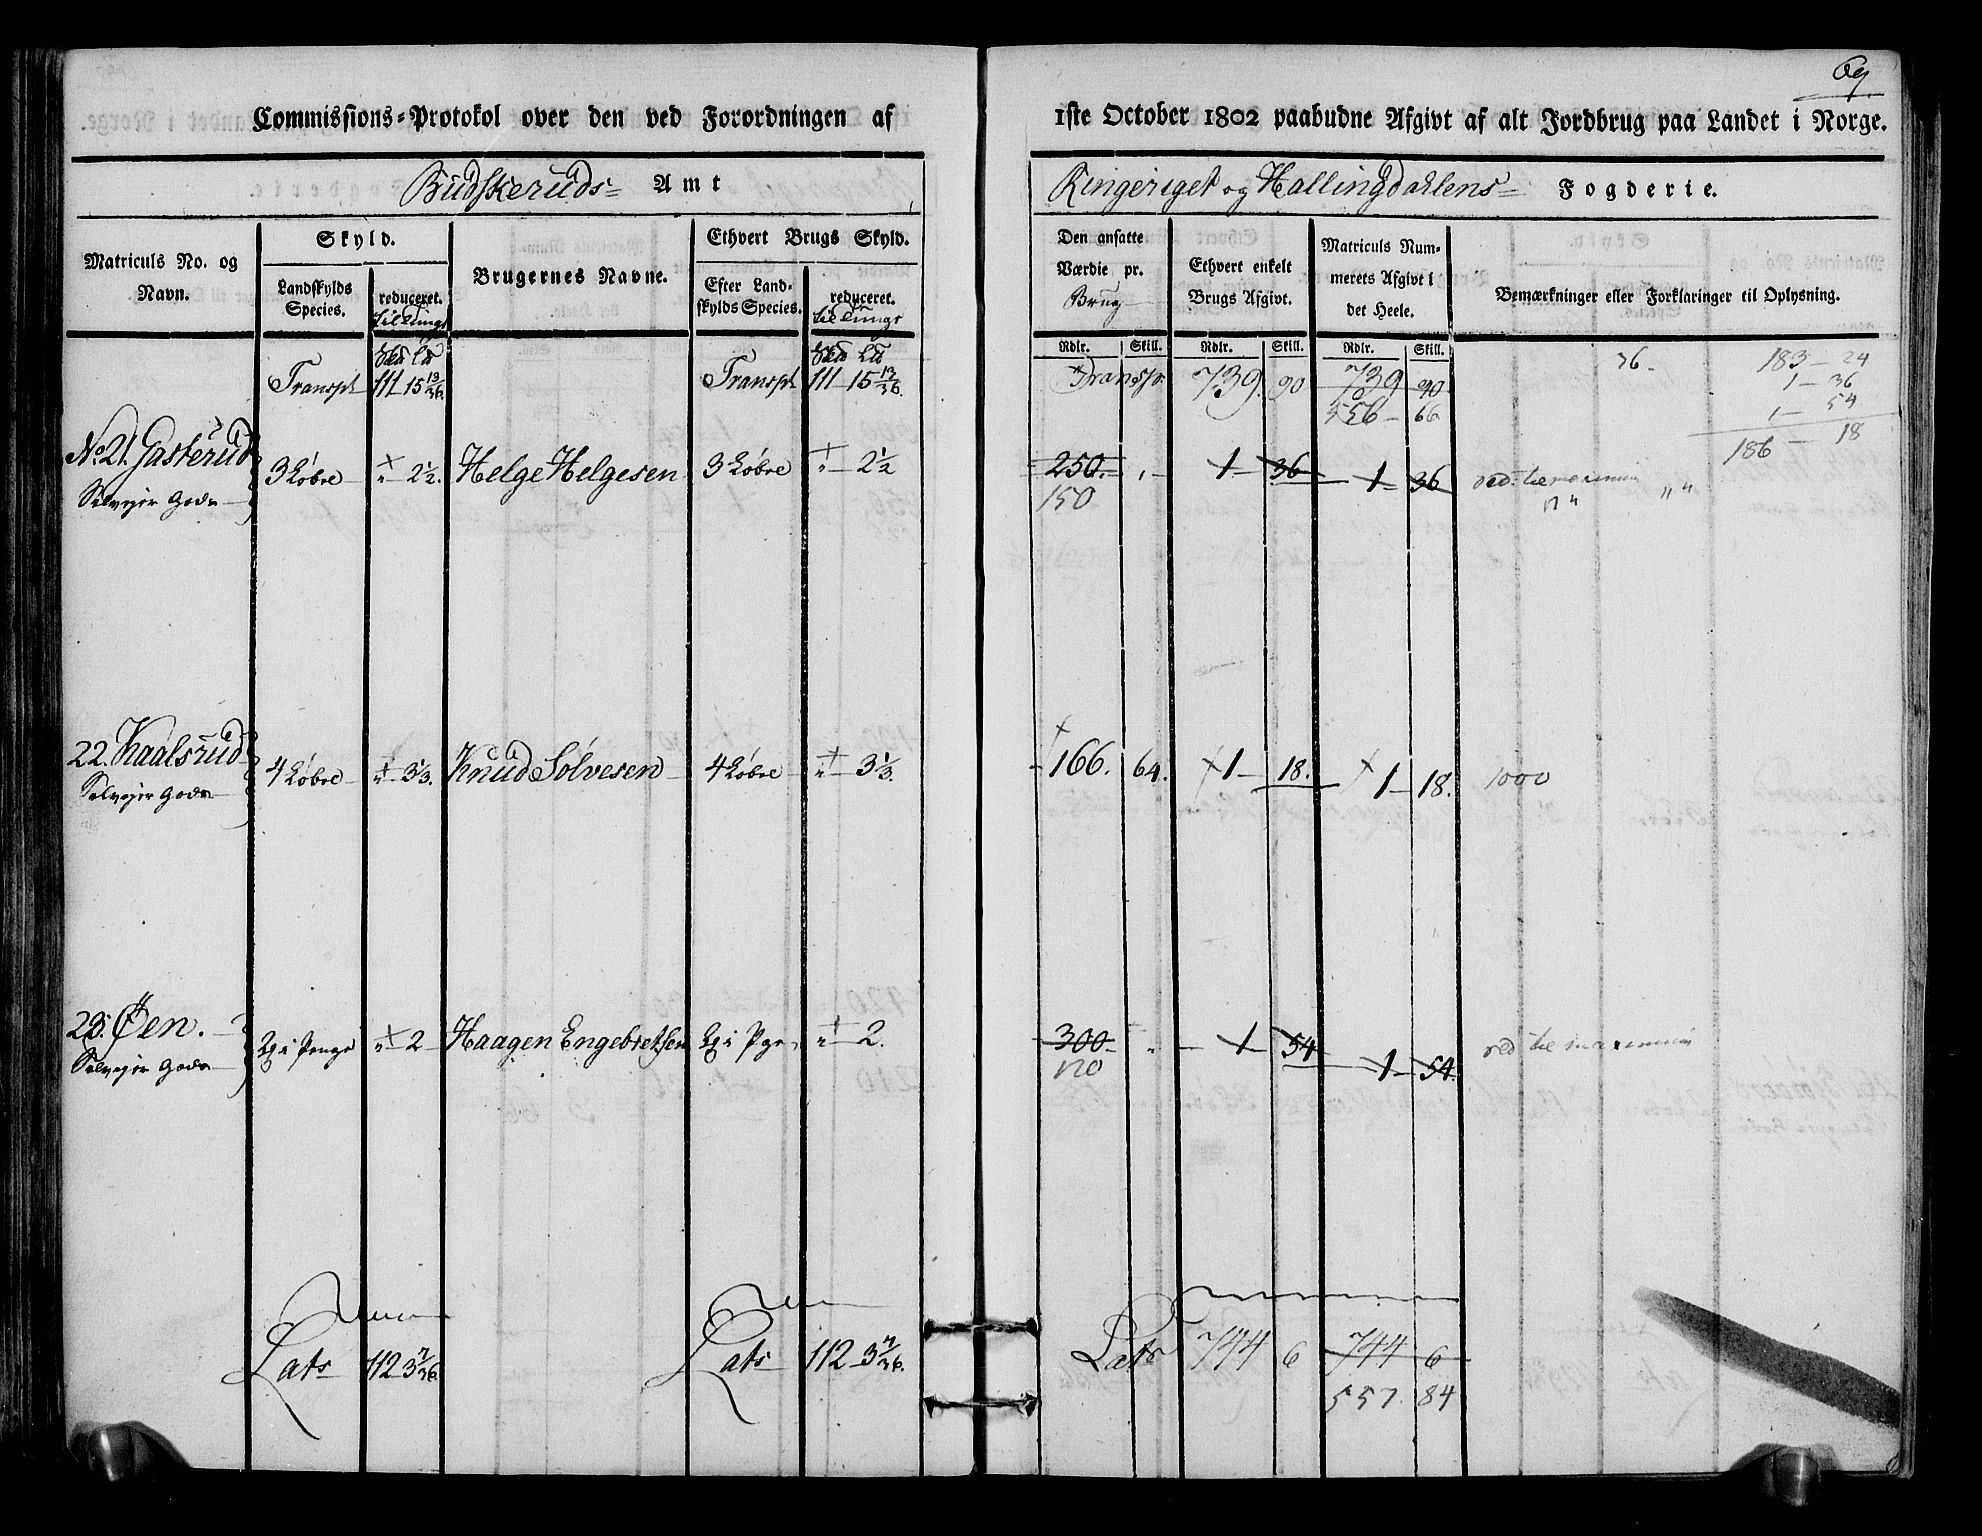 69
Commissions=Protokol over den ved Forordningen af 1ste October 1802 paabudne Afgivt af alt Jordbrug paa Landet i Norge.
Budskeruds= Amt
Ringeriget og Hallingdahlens= Fogderie.
Matriculs No. og Navn.
Skyld.
Landskylds Species.
reduceret.
Brugernes Navne.
Ethvert Brugs Skyld.
Efter Landskylds Species.
reduceret.
Den ansatte Værdie pr. Brug
Ethvert enkelt Brugs Afgivt.
Matriculs Nummerets Afgivt i det Heele.
Bemærkninger eller Forklaringer til Oplysning.
Rdlr. Skill. Rdlr. Skill. Rdlr. Skill.
Transpt 111 15 13/36. Transpt 111 - 15 13/36. Transpt. 739. 90 739 90
556 - 66
36 -
183 - 24
1 - 36
1 - 54
186 - 18
No 21. Gasterud 3 Løbre 2 1/2. Helge Helgesen 3 Løbre 2 1/2 250. 1 36 1 36
150
22. Kaalsrud 4 Løbre 3 1/3. Knud Solvesen 4 Løbre 3 1/3. 166. 64. 1 - 18. 1 - 18. 1000
23. Øen. 2 Haagen Engebretsen 2. 300 1 54 1 54.
120
Lats 112 3 7/36. Lats 112 3 7/36. Lats 744 6 744 6
557. 84